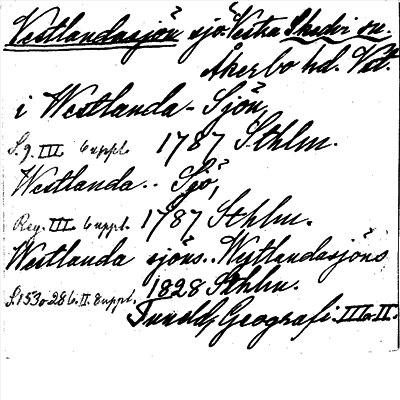 Vestlandasjön sjö: Vestra Skedvi sn.
Åkerbo hd. Vstl.
i Westlanda-Sjön,
S. 9. III. 6 uppl. 1787 Sthlm.
Westlanda.. Sjö,
Reg. III. 6 uppl. 1787 Sthlm.
Westlanda sjöns. Westlandasjöns
S. 153 o. 286. II. 8 uppl. 1828 Sthlm.
Tunelds Geografi. III o. II.